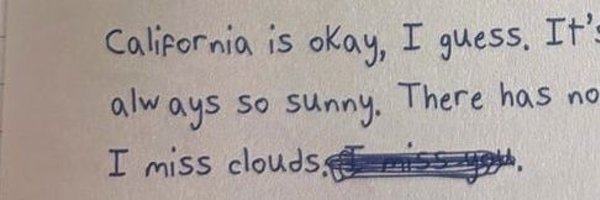 California is okay, I guess. It's
always so sunny. There has no
I miss clouds. I miss you.